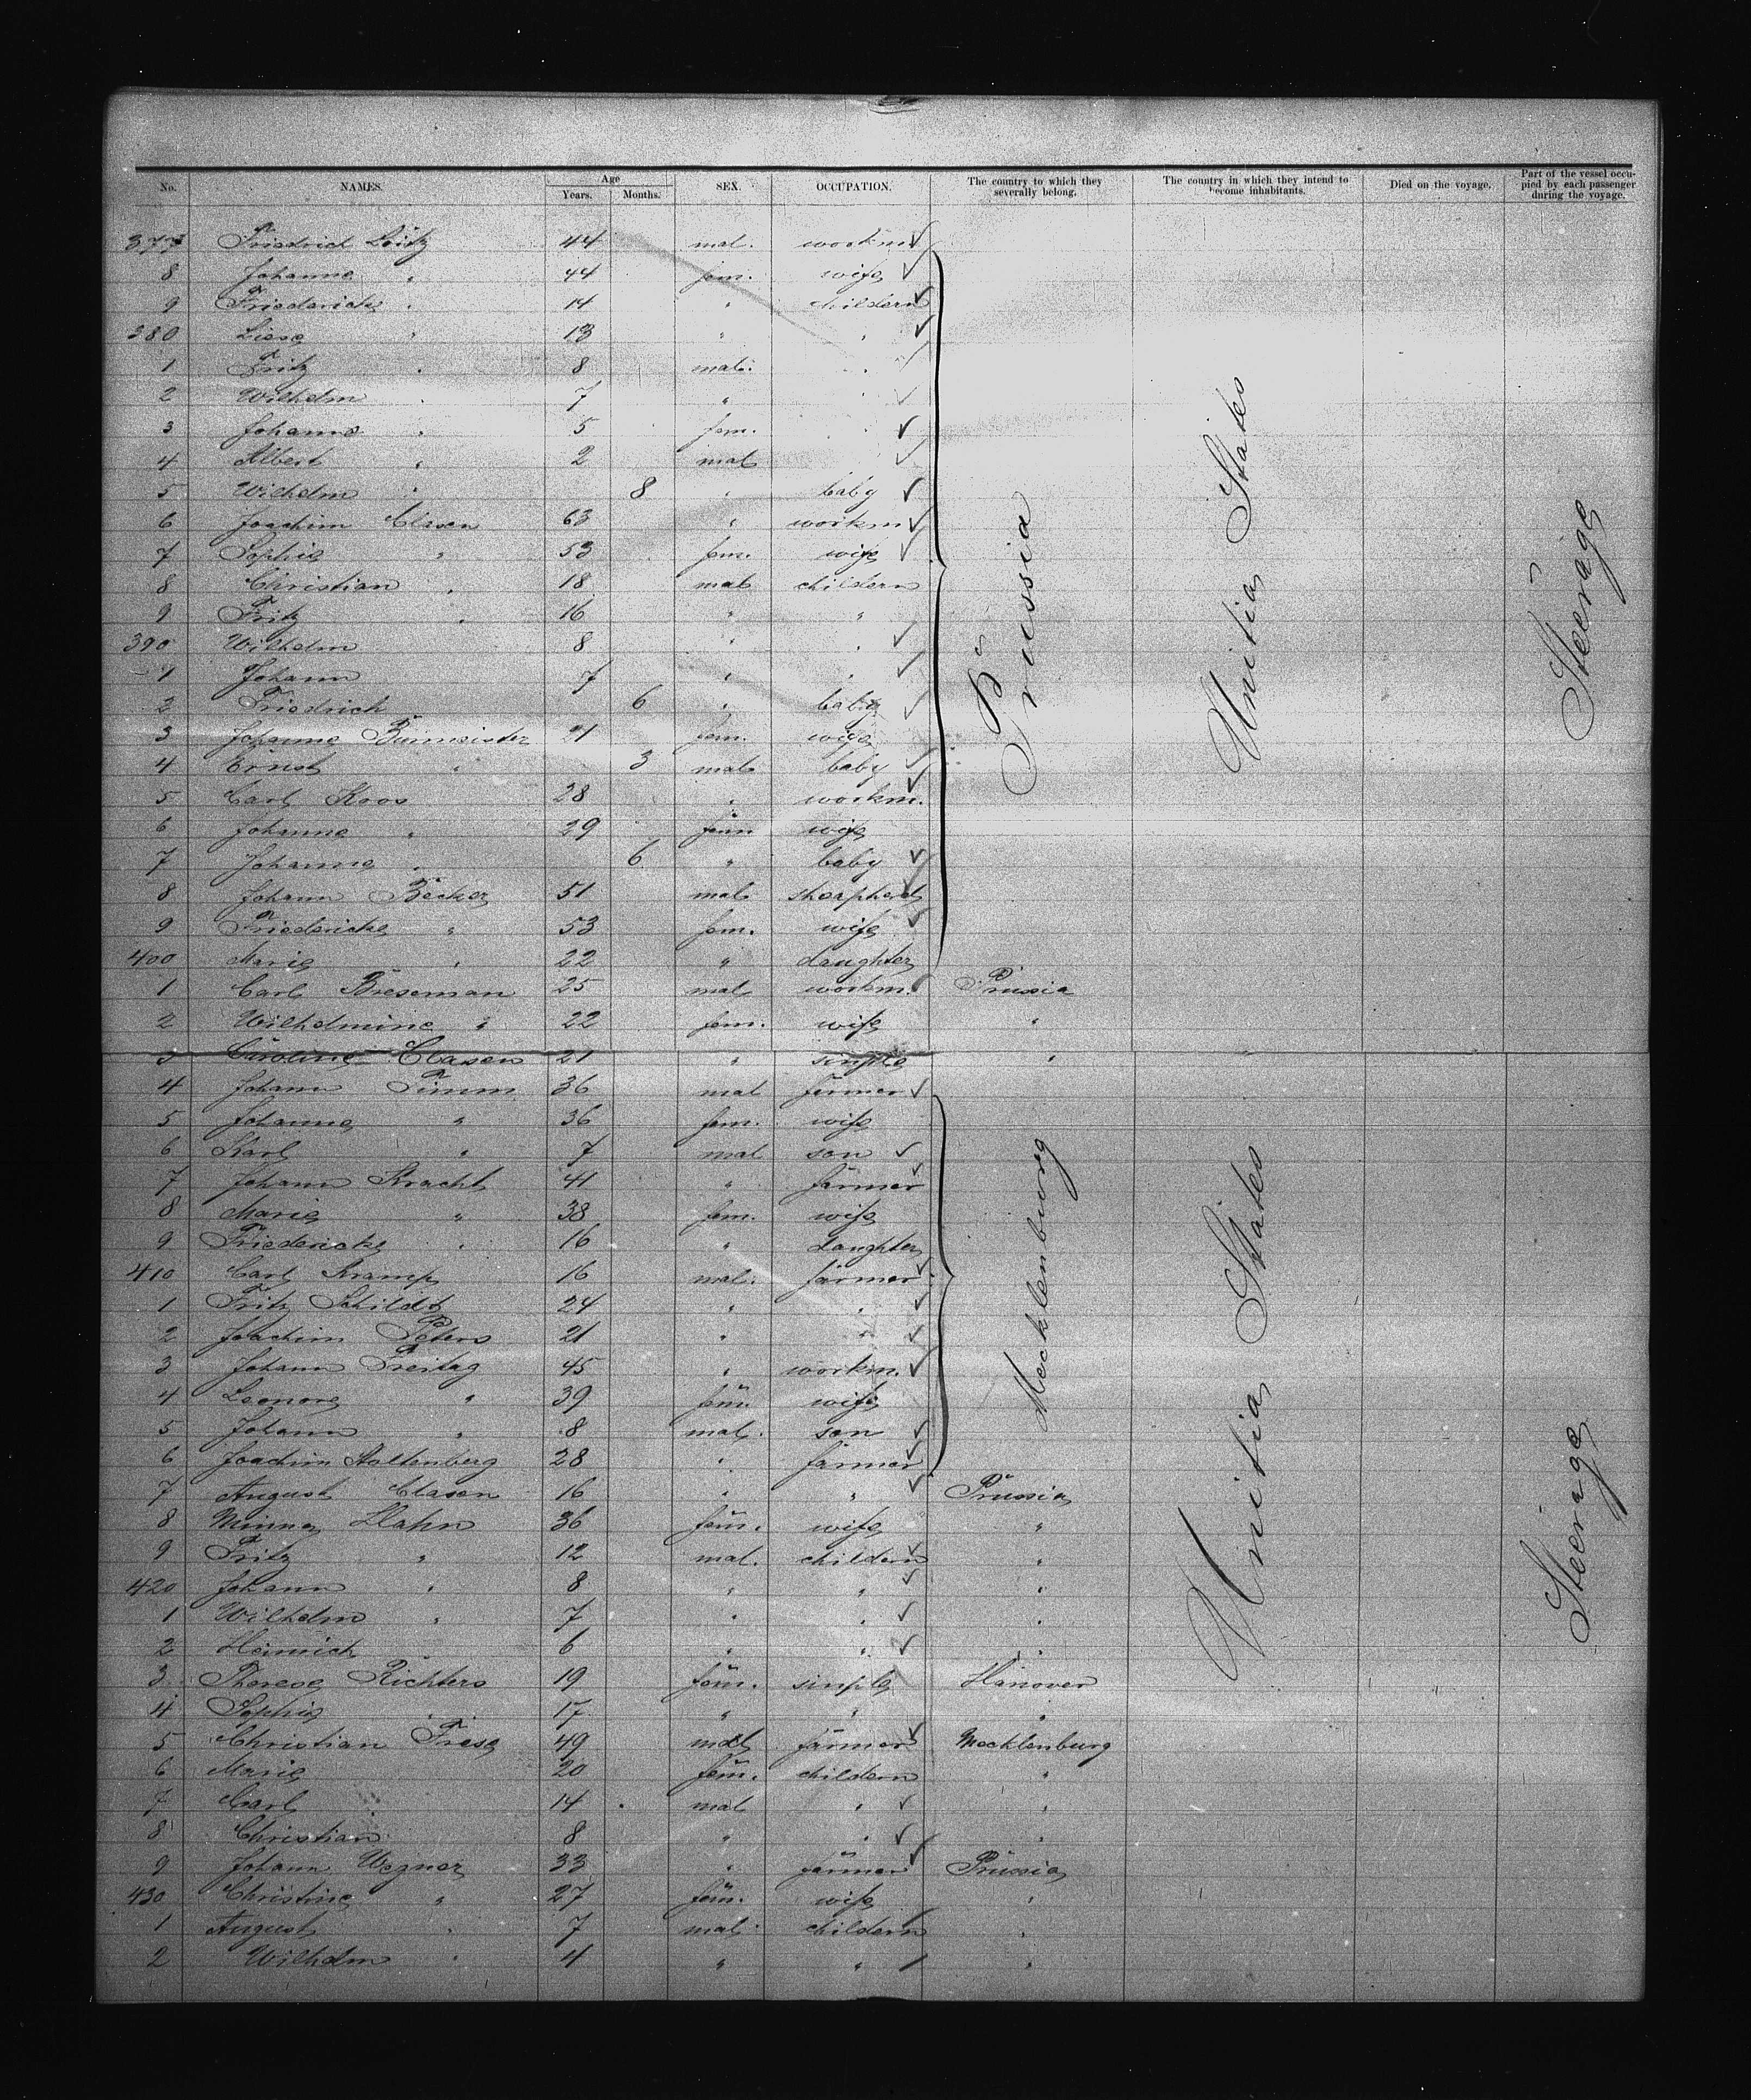 No. NAMES. Age Years. Months. SEX. OCCUPATION. The country to which they severally belong. The country in which they intend to become inhabitants. Died on the voyage. Part of the vessel occupied by each passenger during the voyage.
377 Friedrich Loitz 44 mal. workm.
8 Johanna " 44 fem. wife
9 Friedericke " 14 " childern
380 Liese " 13 " "
1 Fritz " 8 mal. "
2 Wilhelm " 7 " "
3 Johanna " 5 fem. "
4 Albert " 2 mal
5 Wilhelm " 8 " baby
6 Joachim Clasen 63 " workm
7 Sophie " 53 fem. wife
8 Christian " 18 mal childern
9 Fritz " 16 " "
390 Wilhelm 8 " "
1 Johann 7 " "
2 Friedrich 6 " baby
3 Johanna Bürmeister 21 fem. wife
4 Ernst " 3 mal baby
5 Carl Koos 28 " workm.
6 Johanna " 29 fem wife
7 Johanna " 6 " baby
8 Johann Becker 51 mal shepherd
9 Friedericke " 53 fem. wife
400 Marie " 22 " daughter
Prussia
Unitia States
Steerage
1 Carl Bieseman 25 mal workm. Prussia
2 Wilhelmine " 22 fem. wife "
3 Caroline Clasen 21 " single "
4 Johann Timm 36 mal farmer
5 Johanna " 36 fem. wife
6 Karl " 7 mal son
7 Johann Kracht 41 " farmer
8 Marie " 38 fem. wife
9 Friedericke " 16 " daughter
410 Carl Kramp 16 mal. farmer
1 Fritz Schildt 24 " "
2 Joachim Peters 21 " "
3 Johann Freitag 45 " workm.
4 Leonore " 39 fem. wife
5 Johann " 8 mal. son
6 Joachim Stoltenberg 28 " farmer
Mecklenburg
Unitia States
Steerage
7 August Clasen 16 " " Prussia
8 Minna Hahn 36 fem. wife "
9 Fritz " 12 mal. childern "
420 Johann " 8 " " "
1 Wilhelm " 7 " " "
2 Heinrich 6 " " "
3 Therese Richters 19 fem. single Hanover
4 Sophie 17 " " "
5 Christian Frese 49 mal farmer Mecklenburg
6 Marie 20 fem. childern "
7 Carl " 14 mal " "
8 Christian 8 " " "
9 Johann Wegner 33 " farmer Prussia
430 Christine " 27 fem. wife "
1 August " 7 mal. childern "
2 Wilhelm " 4 " " "